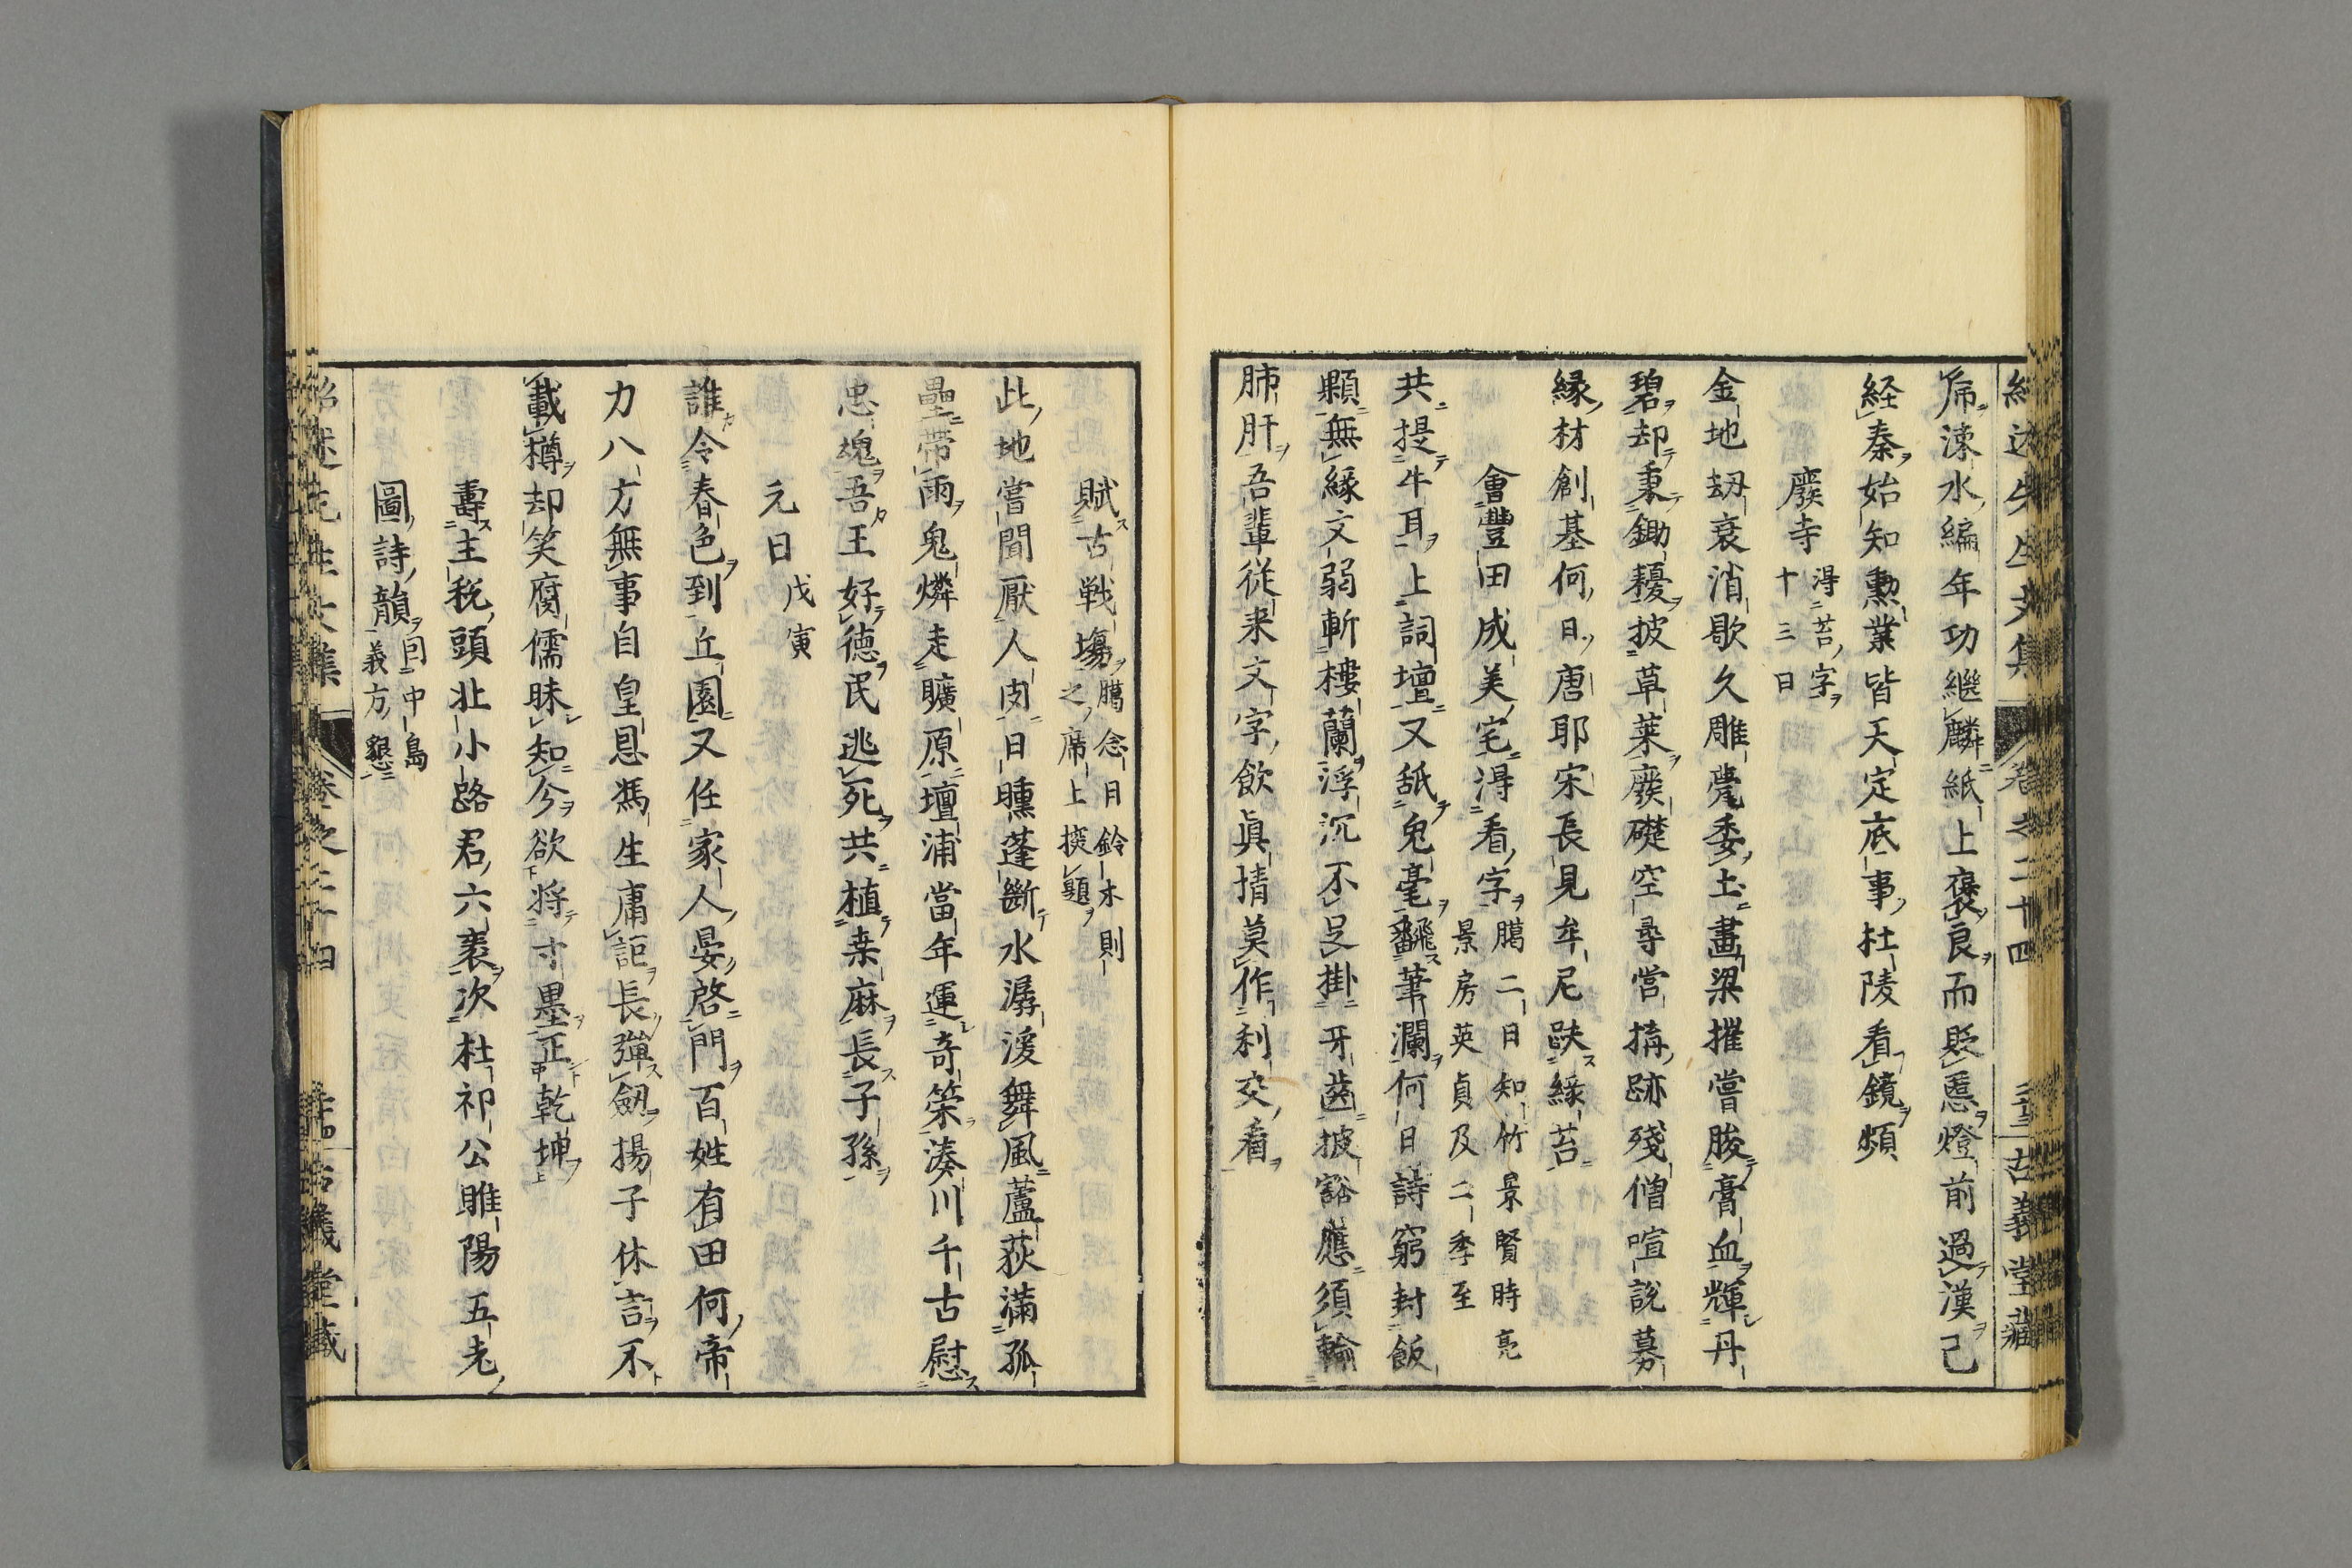 紹述先生文集 卷之二十四 古義堂藏
帋涑水編年功繼麟紙上褒良而貶慝燈前過漢已
経秦始知勲業皆天定底事杜陵看鏡頻
廢寺 得苔字十三日
金地刼衰消歇久雕甍委土畫梁摧嘗朘膏血輝丹
碧却秉鋤耰披草萊廢礎空尋嘗搆跡殘僧喧說募
縁材創基何日唐耶宋長見牟尼趺緣苔
會豐田成美宅得看字 臈二日知竹景賢時亮景房英貞及二季至
共提牛耳上詞壇又舐兔毫飜筆瀾何日詩窮封飯
顆無緣文弱斬樓蘭浮沉不足掛牙齒披豁應須輪
肺肝吾輩従来文字飲眞情莫作利交看
賦古戦塲 臈念日鈴木則之席上探題
此地嘗聞厭人肉日曛蓬斷水潺湲舞風蘆荻滿孤
壘帶雨鬼燐走曠原壇浦當年運奇策湊川千古慰
忠魂吾王好德民逃死共植桒麻長子孫
元日 戊寅
誰令春色到丘園又任家人晏啓門百姓有田何帝
力八方無事自皇恩馮生庸詎長彈劔揚子休言不
載樽却笑腐儒昧知今欲將寸墨正乾坤
壽主税頭北小路君六袠次杜祁公睢陽五老
圖詩韻 同中島義方懇
紹述先生文集 卷之二十四 古義堂藏